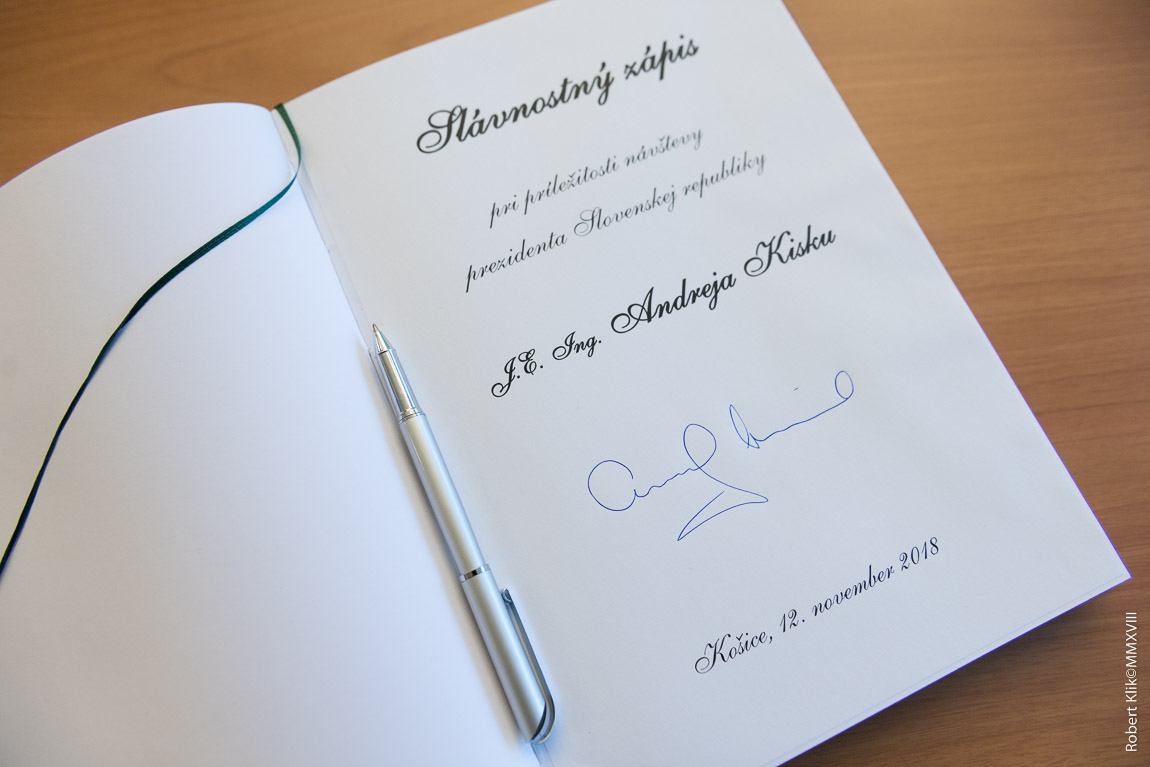 Slávnostný zápis
pri príležitosti návštevy
prezidenta Slovenskej republiky
J.E. Ing. Andreja Kisku
Košice, 12. november 2018
Robert Klik©MMXVIII